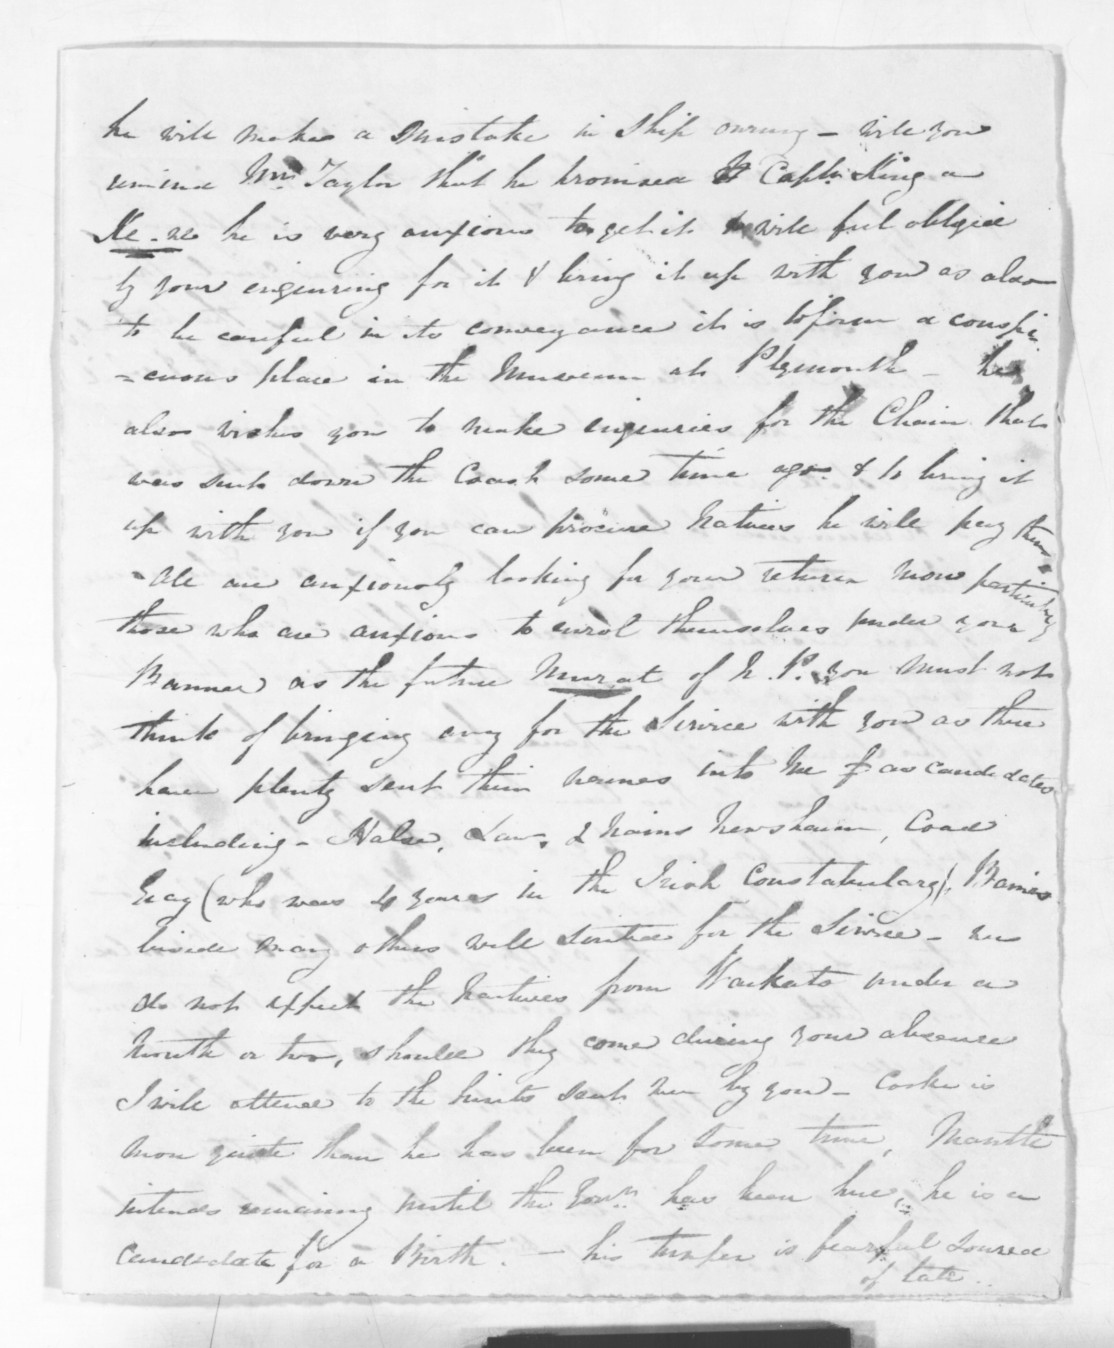 he will make a mistake in Ship owning - will you
remind Mr. Taylor that he promised Captn King a
he is very anxious to get it & will feel obliged
by your enquiring for it & bring it up with you as also
to be careful in its conveyance it is to form a conspi
=cuous place in the Museum at Plymouth - he
also wishes you to make enquiries for the Chain that
was sent down the Coast some time ago & to bring it
up with you if you can procure Natives he will pay them
- All are anxiously looking for your return more particularly
those who are anxious to enrol themselves under your
Banner as the future Murat of N.P. you must not
think of bringing any for the Service with you as there
have plenty sent their names into me as candidates
including - Halse, Law, Newsham, Coad
(who was 4 years in the Irish Constabulary),
beside many others well suited for the Service - we
do not expect the Natives from Waikato under a
Month or two, should they come during your absence
I will attend to the hints sent me by you - Cooke is
more quiet than he has been for some time,
intends remaining until the Govr. has been here, he is a
candidate for a Birth. - his temper is fearful soured
of late.